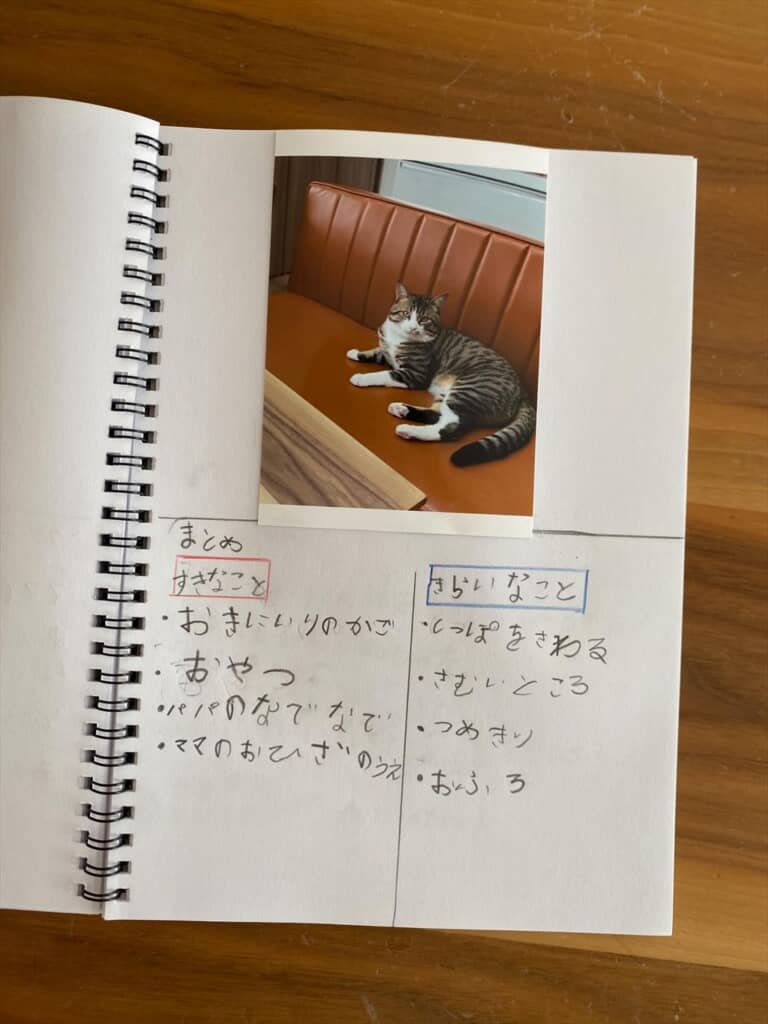 まとめ
すきなこと
・おきにいりのかご
・おやつ
・パパのなでなで
・ママのおひざのうえ
きらいなこと
・しっぽをさわる
・さむいところ
・つめきり
・おふろ